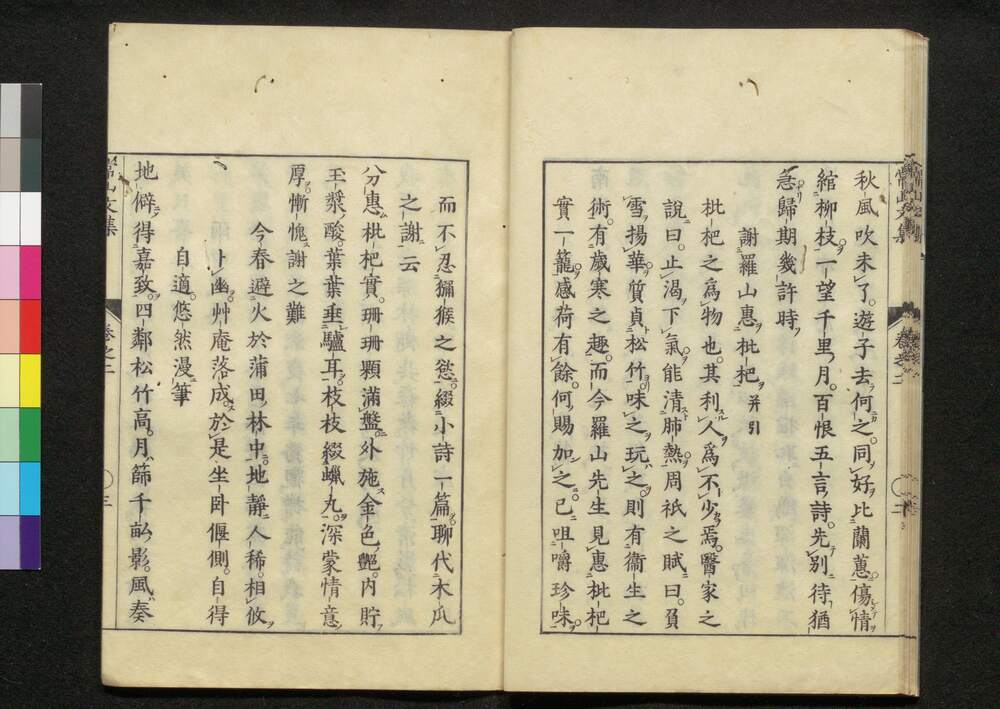 秋風吹未了。遊子去何之。同好比蘭蕙。傷情
綰柳枝。一望千里月。百恨五言詩。先別待猶
急。歸期幾許時。
謝羅山惠枇杷 并引
枇杷之為物也。其利人為不少焉。醫家之
說曰。止渴下氣。能清肺熱。周祇之賦曰。負
雪揚華。質貞松竹。味之玩之。則有衞生之
術。有歲寒之趣。而今羅山先生見惠枇杷
實一籠。感荷有餘。何賜加之。已咀嚼珍味。
而不忍獼猴之愁。綴小詩一篇。聊代木瓜
之謝云
分惠枇杷實。珊珊顆滿盤。外施金色艷。內貯
玉漿酸。葉葉垂驢耳。枝枝綴蠟丸。深蒙情意
厚。慚愧謝之難
今春避火於蒲田林中。地靜人稀。相攸
卜幽。艸庵落成。於是坐卧偃側。自得
自適。悠然漫筆
地僻得嘉致。四鄰松竹高。月篩千畝影。風奏
常山文集
卷之二
三